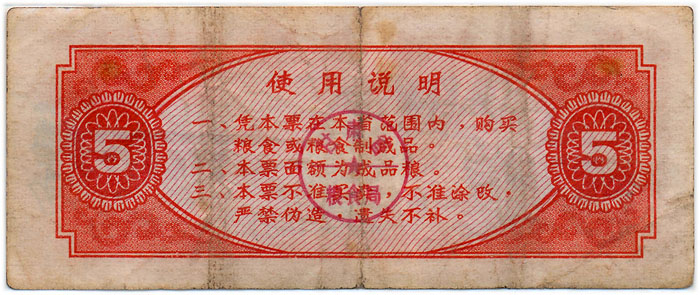 使用说明
5
5
一、凭本票在本省范围内，购买
粮食或粮食制成品。
二、本票面额为成品粮。
三、本票不准买卖，不准涂改，
严禁伪造，遗失不补。
粮食局